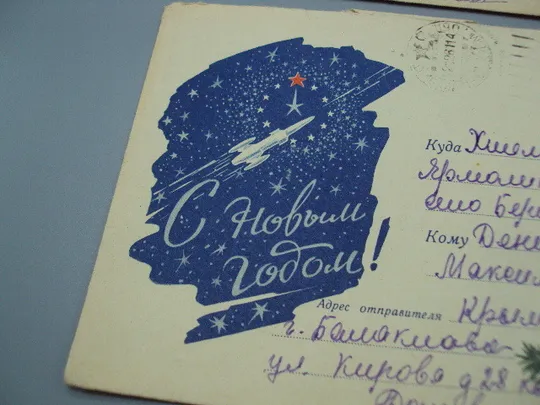 С Новым
годом!
Куда
Ярмоли
село Бер
Кому
Макси
Адрес отправителя Крым
г. Балаклава
ул. Кирова д 28 кв